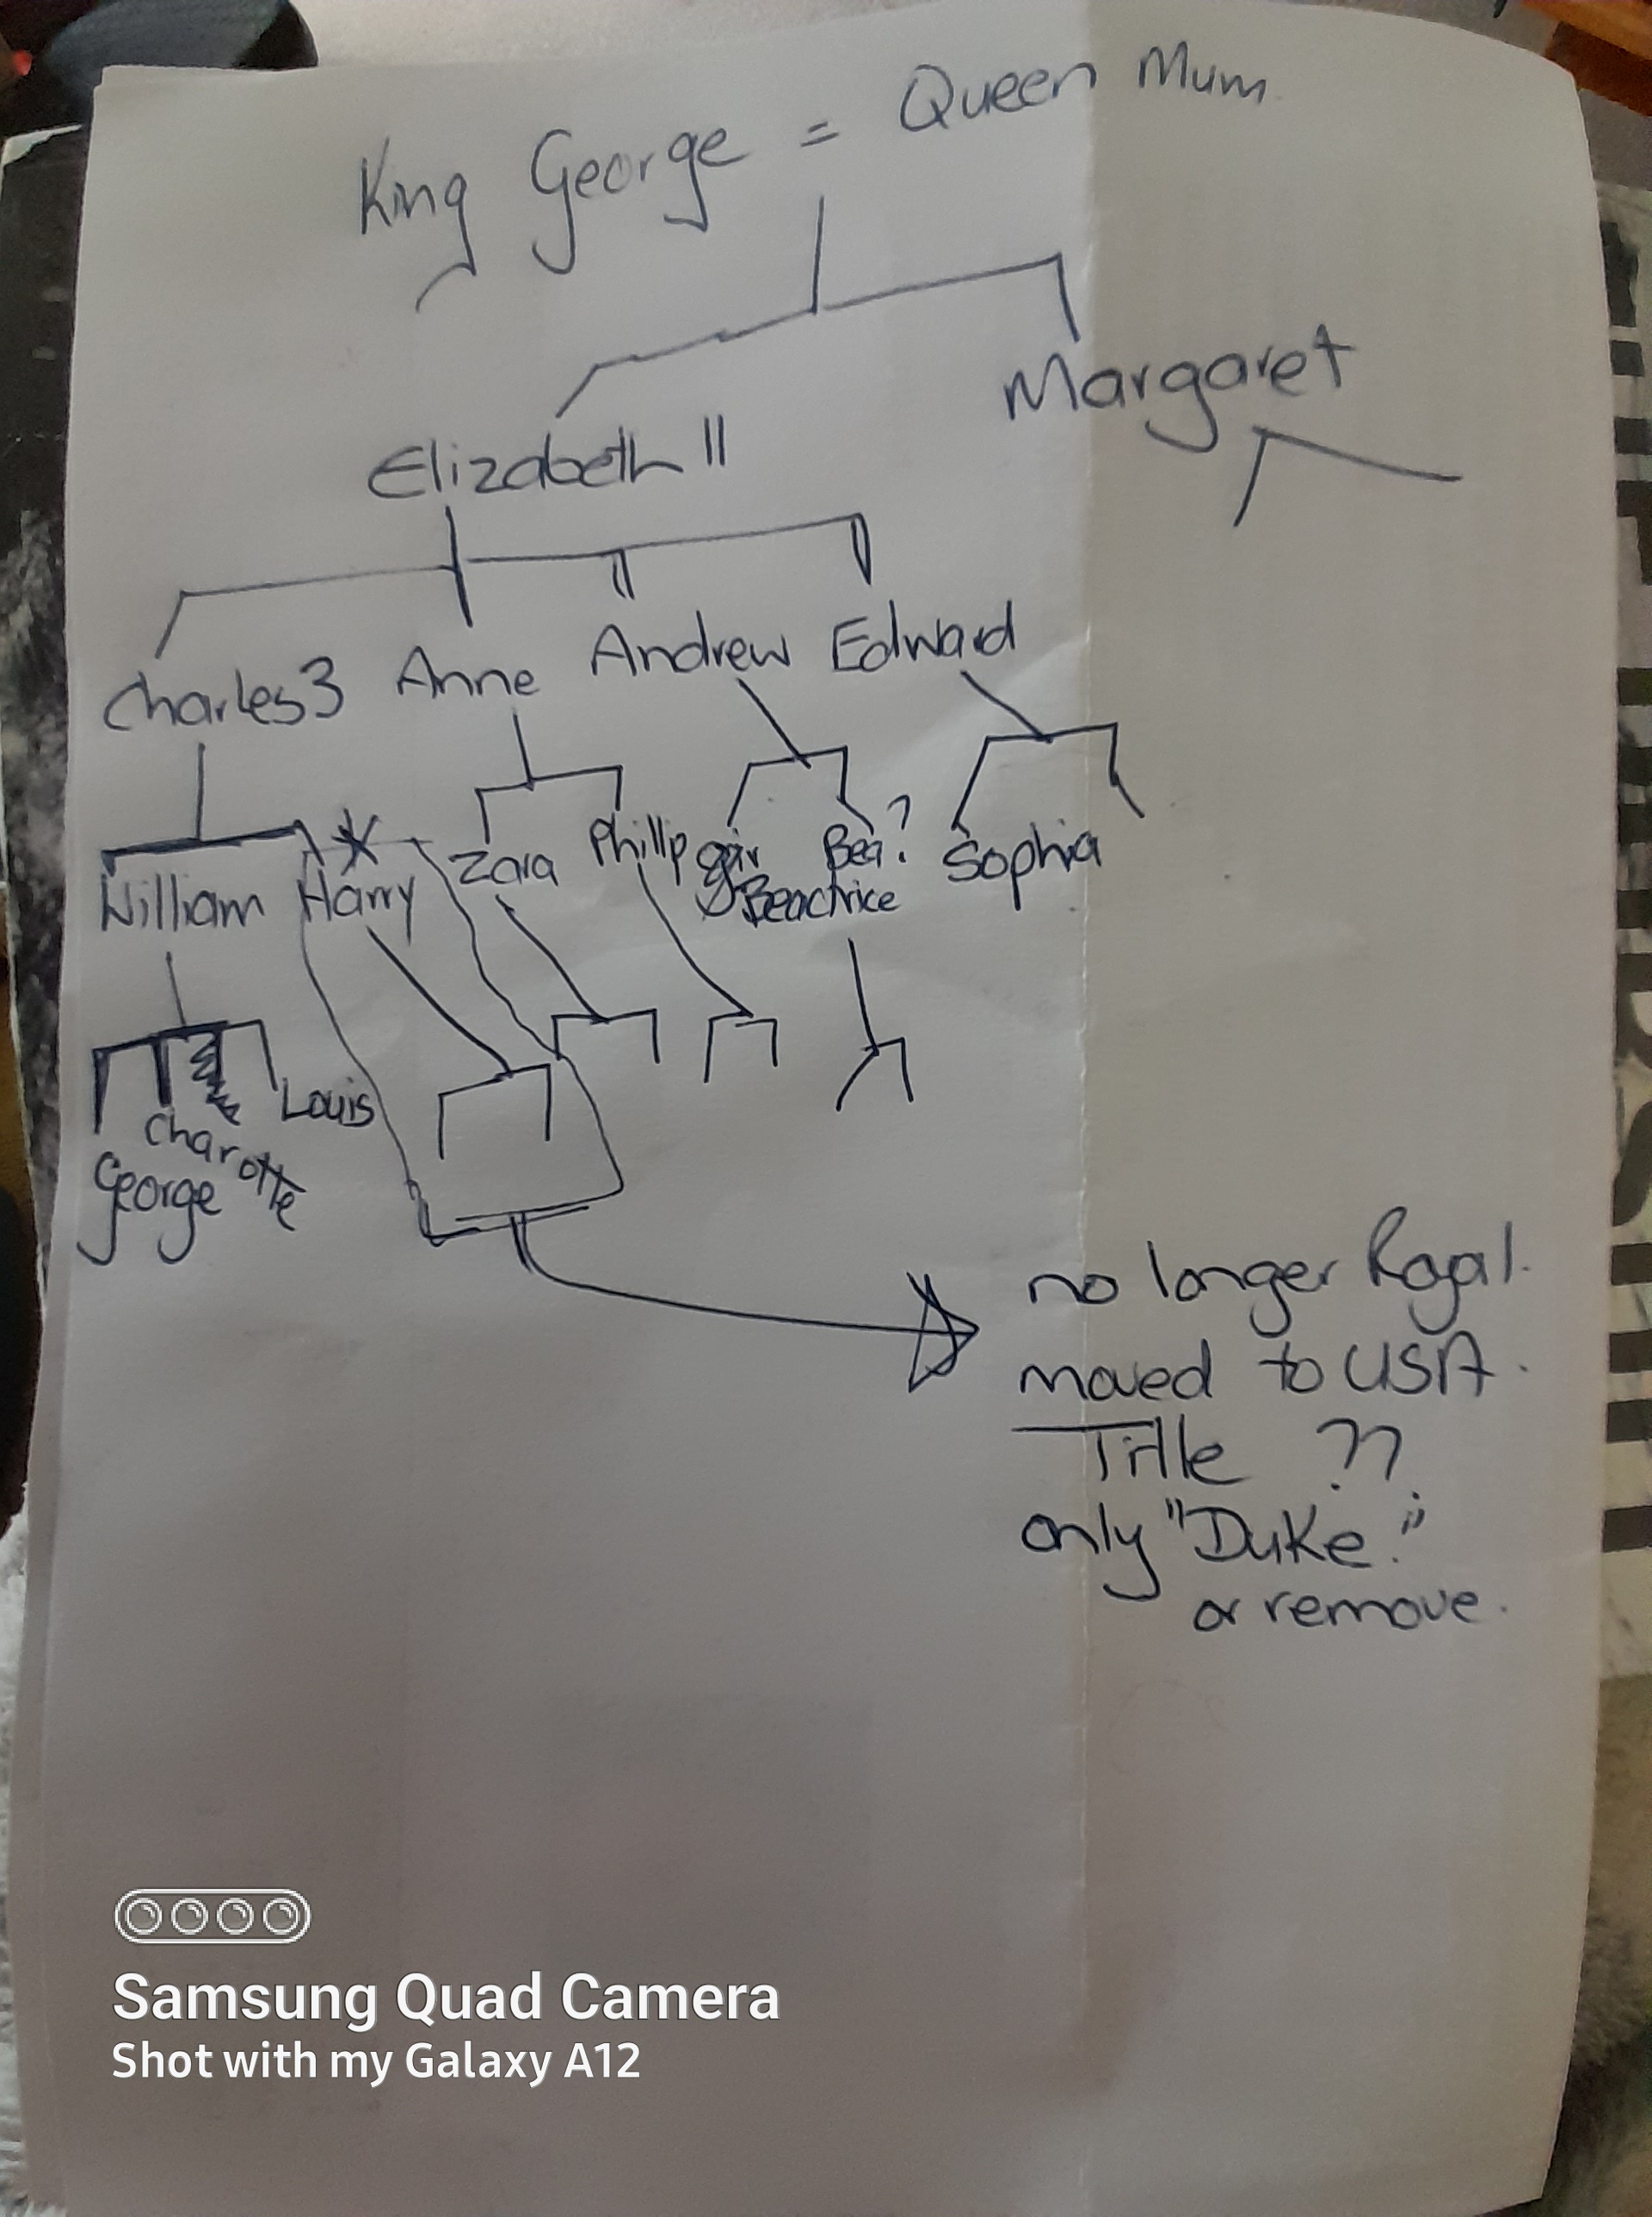 King George = Queen Mum
Margaret
Elizabeth II
Charles3 Anne Andrew Edward
William Harry Zara Phillip Bea? Sophia
Beactrice
Louis
Charotte
George
no longer Royal.
moved to USA.
Title ??
only "Duke."
or remove.
Samsung Quad Camera
Shot with my Galaxy A12